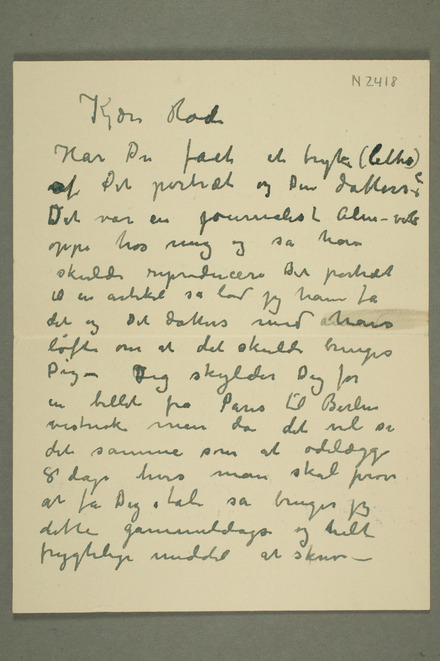 N 2418
Kjære Rode
Har Du faat et tryk (litho)
af Dit portræt og Din datters?
Det var en journalist Alm-
oppe hos mig og sa han
skulde reproducere Dit portræt
i en artikel sa lod jeg ham fa
det og Det datters med hans
løfte om at det skulde bringes
Dig — Jeg skylder Dig for
en billet fra Paris til Berlin
men da det vil si
det samme som at odelægge
8 dage hvis man skal prøve
at fa Dig i tale sa bruger jeg
dette gammeldags og helt
frygtelige middel at skrive —